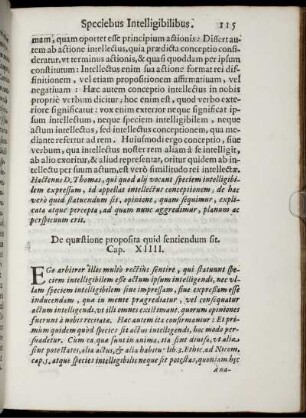 Speciebus Intelligibilibus. 115
mam, quam oportet esse principium actionis: Differt au-
tem ab actione intellectus, quia prædicta conceptio consi-
deratur, vt terminus actionis, & quasi quoddam per ipsum
constitutum: Intellectus enim sua actione format rei dif-
finitionem, vel etiam propositionem affirmatiuam, vel
negatiuam: Hæc autem conceptio intellectus in nobis
proprie verbum dicitur, hoc enim est, quod verbo exte-
riore significatur: vox enim exterior neque significat ip-
sum intellectum, neque speciem intelligibilem, neque
actum intellectus, sed intellectus conceptionem, qua me-
diante refertur ad rem. Huiusmodi ergo conceptio, siue
verbum, qua intellectus noster rem aliam à se intelligit,
ab alio exoritur, & aliud repræsentat, oritur quidem ab in-
tellectu per suum actum, est verò similitudo rei intellectæ.
Hactenus D. Thomas, qui quod alij vocant speciem intelligibi-
lem expressam, id appellat intellectus conceptionem, de hac
verò quid statuendum sit, opinione, quam sequimur, expli-
cata atque percepta, ad quam nunc aggredimur, planum ac
perspicuum erit.
De quæstione proposita quid sentiendum sit.
Cap. XIIII.
EGo arbitror illos multò rectius sentire, qui statuunt spe-
ciem intelligibilem esse actum ipsum intelligendi, nec vl-
lam speciem intelligibilem siue impressam, siue expressam esse
inducendam, quæ in mente prægrediatur, vel consequatur
actum intelligendi, vt illi omnes existimant, quorum opiniones
fuerunt à nobis recitatæ. Hæc autem ita confirmamus: Et pri-
mùm quidem quòd species sit actus intelligendi, hoc modo per-
suadetur. Cum ea quæ sunt in anima, ita sint diuisa, vt alia
sint potestates, alia actus, & alia habitus lib. 2. Ethic. ad Nicom.
cap. 5. atqui species intelligibilis neque sit potestas, quoniam hæc
à na-